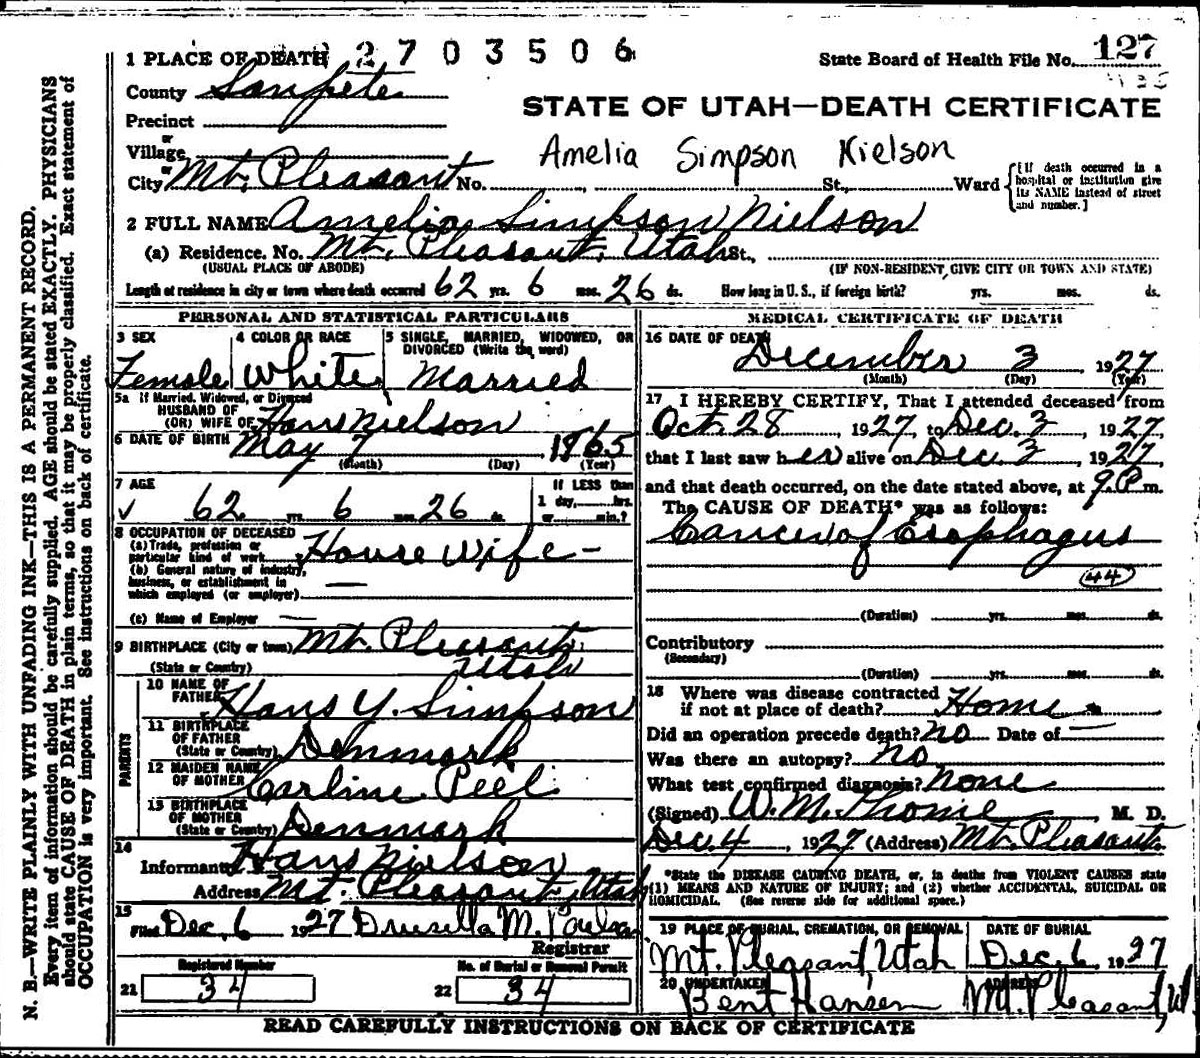 1 PLACE OF DEATH 2703506
State Board of Health File No. 127
County Sanpete
STATE OF UTAH—DEATH CERTIFICATE
Precinct
or
Village
Amelia Simpson Nielson
or
City Mt. Pleasant No. , St., Ward
[If death occurred in a hospital or institution give its NAME instead of street and number.]
2 FULL NAME Amelia Simpson Nielson
(a) Residence. No. Mt. Pleasant, Utah St.,
(USUAL PLACE OF ABODE) (IF NON-RESIDENT, GIVE CITY OR TOWN AND STATE)
Length of residence in city or town where death occurred 62 yrs. 6 mos. 26 ds. How long in U. S., if foreign birth? yrs. mos. ds.
PERSONAL AND STATISTICAL PARTICULARS
3 SEX 4 COLOR OR RACE 5 SINGLE, MARRIED, WIDOWED, OR
DIVORCED (Write the word)
Female White Married
5a If Married, Widowed, or Divorced
HUSBAND OF
(OR) WIFE OF Hans Nielson
6 DATE OF BIRTH May 7, 1865
(Month) (Day) (Year)
7 AGE If LESS than
62 yrs. 6 mos. 26 ds. 1 day, hrs.
or min.?
8 OCCUPATION OF DECEASED
(a) Trade, profession or
particular kind of work House Wife —
(b) General nature of industry,
business, or establishment in
which employed (or employer) —
(c) Name of Employer —
9 BIRTHPLACE (City or town) Mt. Pleasant,
(State or Country) Utah
PARENTS
10 NAME OF
FATHER Hans Y. Simpson
11 BIRTHPLACE
OF FATHER
(State or Country) Denmark
12 MAIDEN NAME
OF MOTHER Carline Peel
13 BIRTHPLACE
OF MOTHER
(State or Country) Denmark
14
Informant Hans Nielson
Address Mt. Pleasant, Utah
15
Filed Dec. 6 1927 Drusella M.
Registrar
Registered Number No. of Burial or Removal Permit
21 34 22 34
MEDICAL CERTIFICATE OF DEATH
16 DATE OF DEATH
December 3 1927
(Month) (Day) (Year)
17 I HEREBY CERTIFY, That I attended deceased from
Oct. 28, 1927, to Dec. 3, 1927,
that I last saw her alive on Dec. 3, 1927,
and that death occurred, on the date stated above, at 9 P. m.
The CAUSE OF DEATH* was as follows:
Cancer of Esophagus
44
(Duration) yrs. mos. ds.
Contributory
(Secondary)
(Duration) yrs. mos. ds.
18 Where was disease contracted
if not at place of death? Home
Did an operation precede death? No Date of —
Was there an autopsy? No
What test confirmed diagnosis? None
(Signed) W. M. Thome, M. D.
Dec. 4, 1927 (Address) Mt. Pleasant.
*State the DISEASE CAUSING DEATH, or, in deaths from VIOLENT CAUSES state
(1) MEANS AND NATURE OF INJURY; and (2) whether ACCIDENTAL, SUICIDAL OR
HOMICIDAL. (See reverse side for additional space.)
19 PLACE OF BURIAL, CREMATION, OR REMOVAL DATE OF BURIAL
Mt. Pleasant Utah Dec. 6, 1927
20 UNDERTAKER ADDRESS
Bent Hansen Mt. Pleasant, Ut
READ CAREFULLY INSTRUCTIONS ON BACK OF CERTIFICATE
N. B.—WRITE PLAINLY WITH UNFADING INK—THIS IS A PERMANENT RECORD.
Every item of information should be carefully supplied. AGE should be stated EXACTLY. PHYSICIANS
should state CAUSE OF DEATH in plain terms, so that it may be properly classified. Exact statement of
OCCUPATION is very important. See instructions on back of certificate.